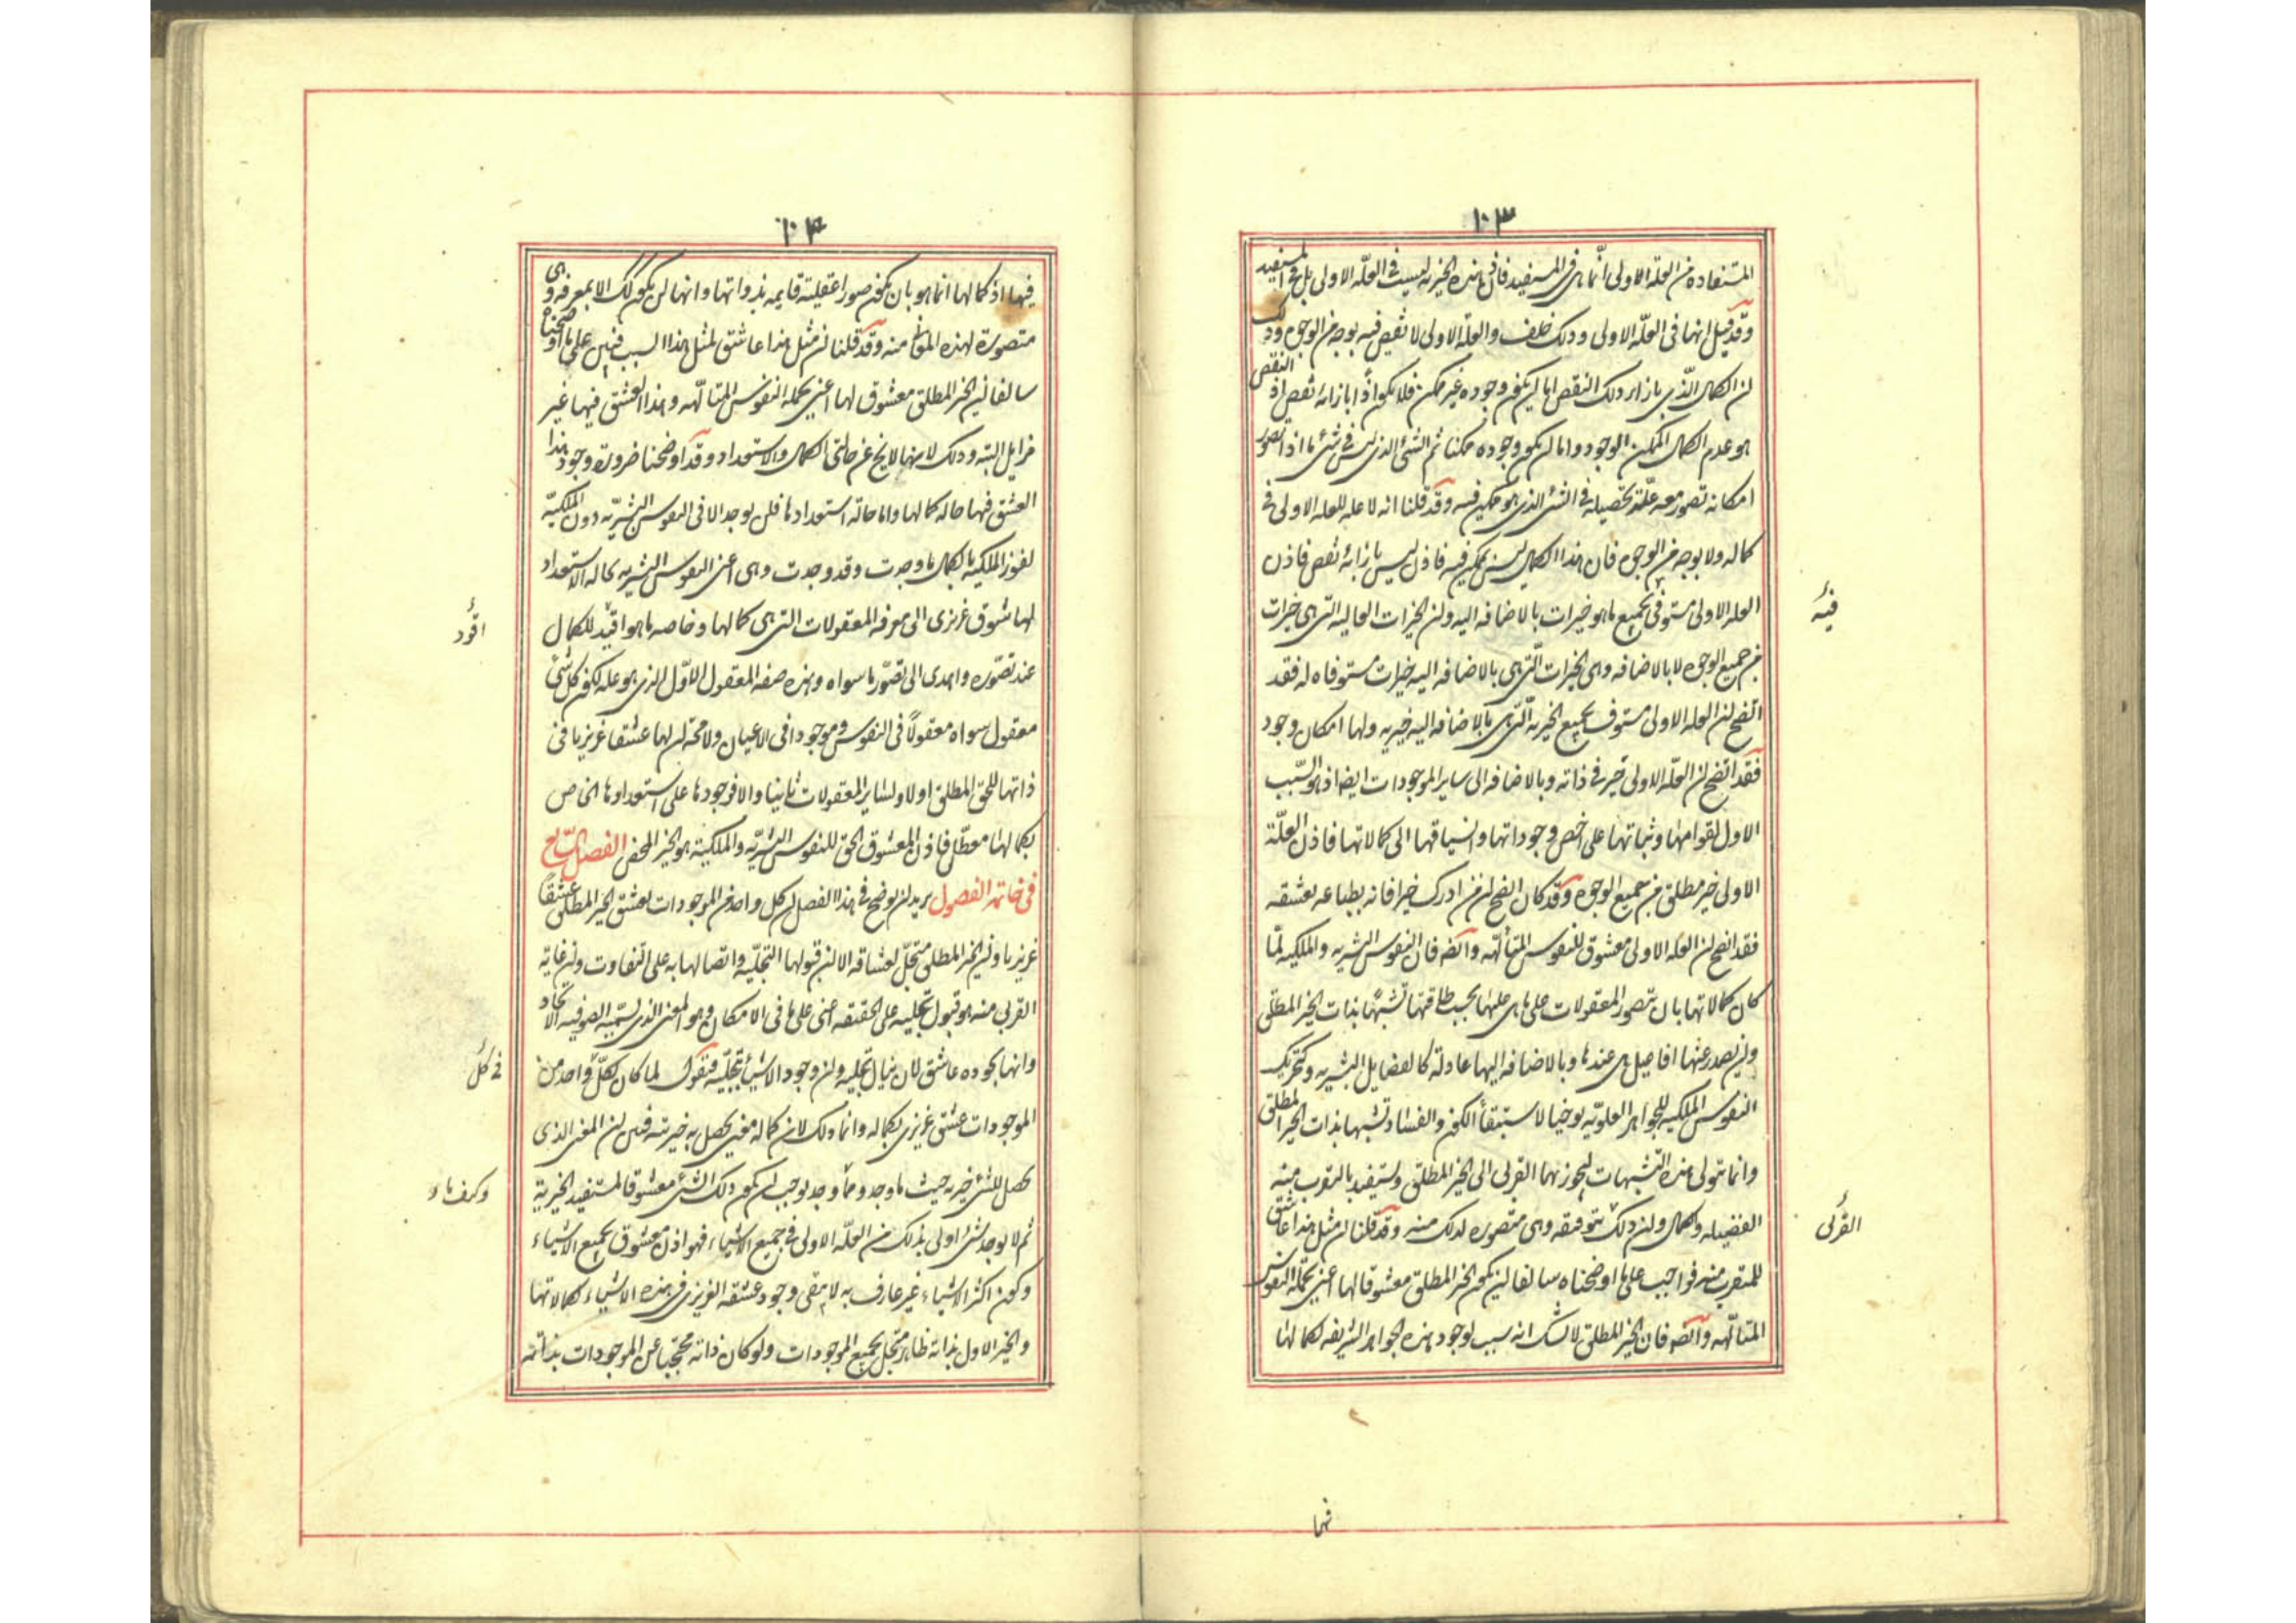 ١٠٣
المستفاده من العلة الاولى انّما هى فى المستفيد فاذن هذه الخيريه ليست فى العلّه الاولى بل فى المستفيد
وقد قيل انها فى العلّه الاولى وذلك خلف والعلّة الاولى لا نقص فيه بوجه من الوجوه وذلك
لان الكمال الّذى بازاء ذلك النقص اما ان يكون وجوده غير ممكن فلا يكون اذًا بازائه نقص اذ النقص
هو عدم الكمال الممكن الوجود واما ان يكون وجوده ممكنا ثم الشئ الذى ليس فى شئ ما اذا تصور
امكانه تصور معه علّة تحصيله فى الشئ الذى هو ممكن فيه وقد قلنا انه لا عله للعله الاولى فى
كماله ولا بوجه من الوجوه فان هذا الكمال ليس بممكن فيه فاذن ليس بازائه نقص فاذن
العله الاولى مستوفى بجميع ما هو خيرات بالاضافه اليه وان الخيرات العاليه التى هى خيرات
فيه
من جميع الوجوه لا بالاضافه وهى الخيرات الّتى هى بالاضافه اليه خيرات مستوفاه له فقد
اتضح ان العله الاولى مستوف بجميع الخيريه الّتى هى بالاضافه اليه خيريه ولها امكان وجود
فقد اتضح ان العلّه الاولى خير فى ذاته وبالاضافه الى ساير الموجودات ايضا اذ هو السّبب
الاول لقوامها وثباتها على اخص وجوداتها وانسياقها الى كمالاتها فاذن العلّة
الاولى خير مطلق من جميع الوجوه وقد كان اتضح ان من ادرك خيرا فانه بطباعه يعشقه
فقد اتضح ان العله الاولى معشوق للنفوس المتألّهه وايضه فان النفوس البشريه والملكيه لمّا
كان كمالاتها بان تتصور المعقولات على ما هى عليها بحسب طاقتها تشبّهًا بذات الخير المطلق
وان يصدر عنها افاعيل هى عندها وبالاضافه اليها عادلة كالفضايل البشريه وكتحريك
النفوس الملكيه للجواهر العلويّه توخيا لاستبقأ الكون والفساد تشبها بذات الخير المطلق
وانما تتولى هذه التّشبهات ليحوز بهما القربى الى الخير المطلق ولتستفيد بالتقرب منه
الفضيله والكمال وان ذلك بتوفيقه وهى متصوره لذلك منه وقد قلنا ان مثل هذا عاشق
القربى
للمتقرب منه فواجب على ما اوضحناه سالفا ان يكون الخير المطلق معشوقا لها اعنى بجملة النفوس
المتالّهه وايضه فان الخير المطلق لا شك انه سبب لوجود هذه الجواهر الشريفه لكمالها
فيها
١٠٤
فيها اذ كمالها انما هو بان يكون صورا عقليته قايمه بذواتها وانها لن يكون كذلك الا بمعرفه وهى
متصورة لهذه المعانى منه وقد قلنا ان مثل هذا عاشق لمثل هذا السبب فبين على ما اوضحناه
سالفا ان الخير المطلق معشوق لها اعنى بجمله النفوس المتالّهه وهذا العشق فيها غير
مزايل البتّه وذلك لانها لا يخ عن حالتى الكمال والاستعداد وقد اوضحنا ضرورة وجود هذا
العشق فيها حاله كمالها واما حالة استعدادها فلن يوجد الا فى النفوس البشريّه دون الملكيّه
لفوز الملكيه بالكمال ما وجدت وقد وجدت وهى اعنى النفوس البشريه بحاله الاستعداد
لها شوق غريزى الى معرفه المعقولات التى هى كمالها وخاصه ما هو اقيد للكمال
اقود
عند تصوّره واهدى الى تصوّر ما سواه وهذه صفه المعقول الاوّل الذى هو عله لكون كل شئ
معقول سواه معقولاً فى النفوس وموجودا فى الاعيان ولا محّه ان لها عشقا غريزيا فى
ذاتها للحق المطلق اولا ولساير المعقولات ثانيا والا فوجودها على استعدادها الخاص
بكمالها معطّل فاذن المعشوق الحق للنفوس البشريّه والملكيّة هو الخير المحض الفصل السّابع
فى خاتمة الفصول نريد ان نوضح فى هذا الفصل ان كل واحد من الموجودات يعشق الخير المطلق عشقًا
غريزيا وان الخير المطلق متجلّ لعشاقه الا ان قبولها التجلّيه واتصالها به على التفاوت وان غاية
القربى منه هو قبول تجليه على الحقيقه اعنى على ما فى الامكان وهو المعنى الذى يسمّيه الصوفيه الاتحاد
وانها بجوده عاشق لان ينال تجليه وان وجود الاشيأ بتجلّيه فنقول لما كان لكلّ واحد من
فى كل
الموجودات عشق غريزى بكماله وانما ذلك لان كماله معنى يحصل به خيريته فبين ان المعنى الذى
يحصل للشئ خيريه حيث ما وجد ومأ وجد يوجب ان يكون ذلك الشئ معشوقا لمستفيد الخيرية
وكيف ما
ثم لا يوجد شئ اولى بذلك من العلّه الاولى فى جميع الاشياء فهو اذن معشوق لجميع الاشياء
وكون اكثر الاشياء غير عارف به لا ينفى وجود عشقه الغريزى فى هذه الاشياء لكمالاتها
والخير الاول بذاته ظاهر متجل بجميع الموجودات ولو كان ذاته محتجبا عن الموجودات بذاته